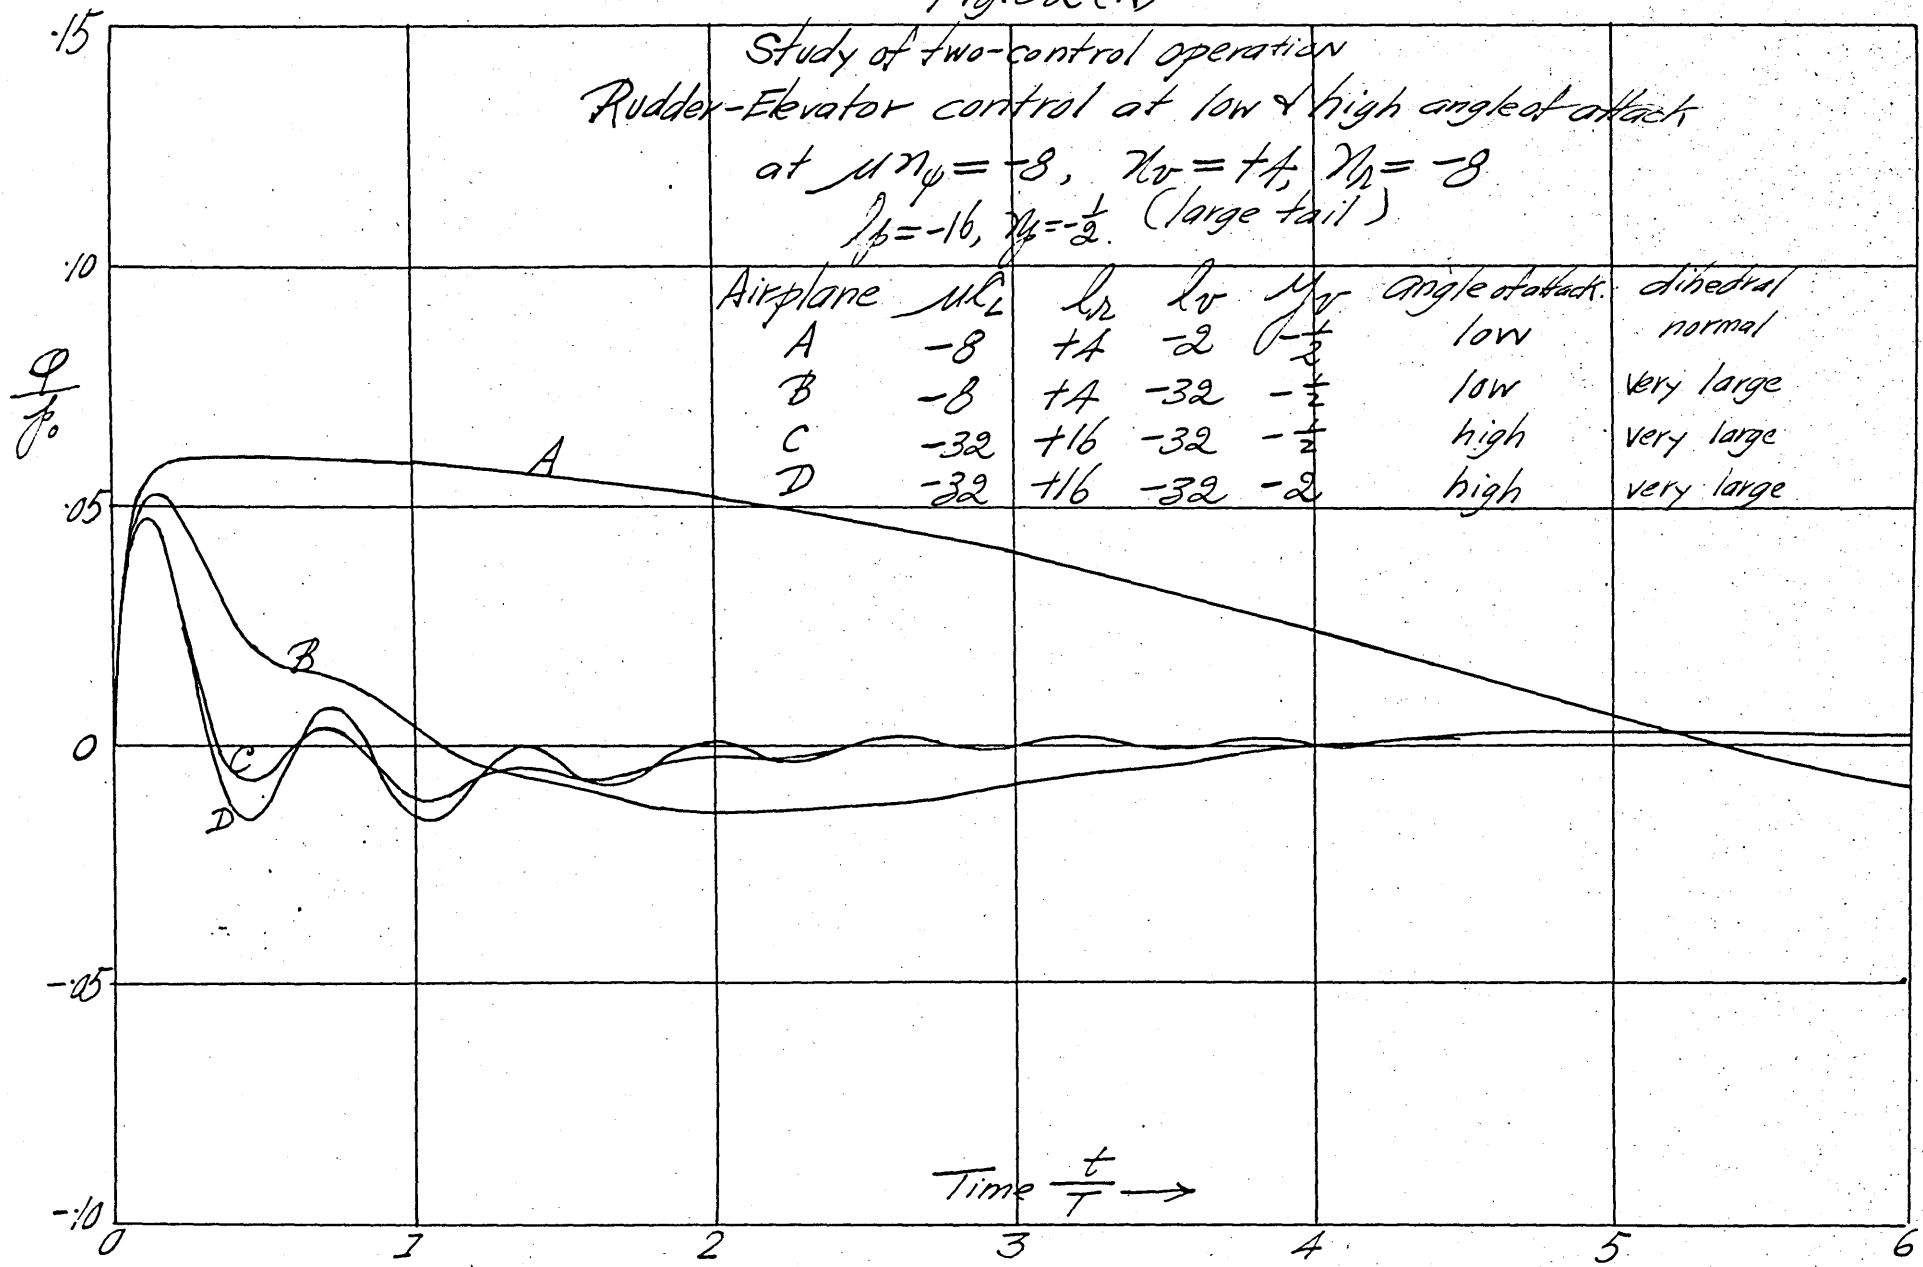 Study of two-control operation
Rudder-Elevator control at low & high angle of attack
at μn_ψ = -8, n_v = +4, n_r = -8
l_p = -16, n_p = -1/2. (large tail)
Airplane μC_L l_r l_v y_v angle of attack. dihedral
A -8 +4 -2 -1/2 low normal
B -8 +4 -32 -1/2 low very large
C -32 +16 -32 -1/2 high very large
D -32 +16 -32 -2 high very large
.15
.10
.05
0
-.05
-.10
φ/p₀
A
B
C
D
Time t/T →
0 1 2 3 4 5 6